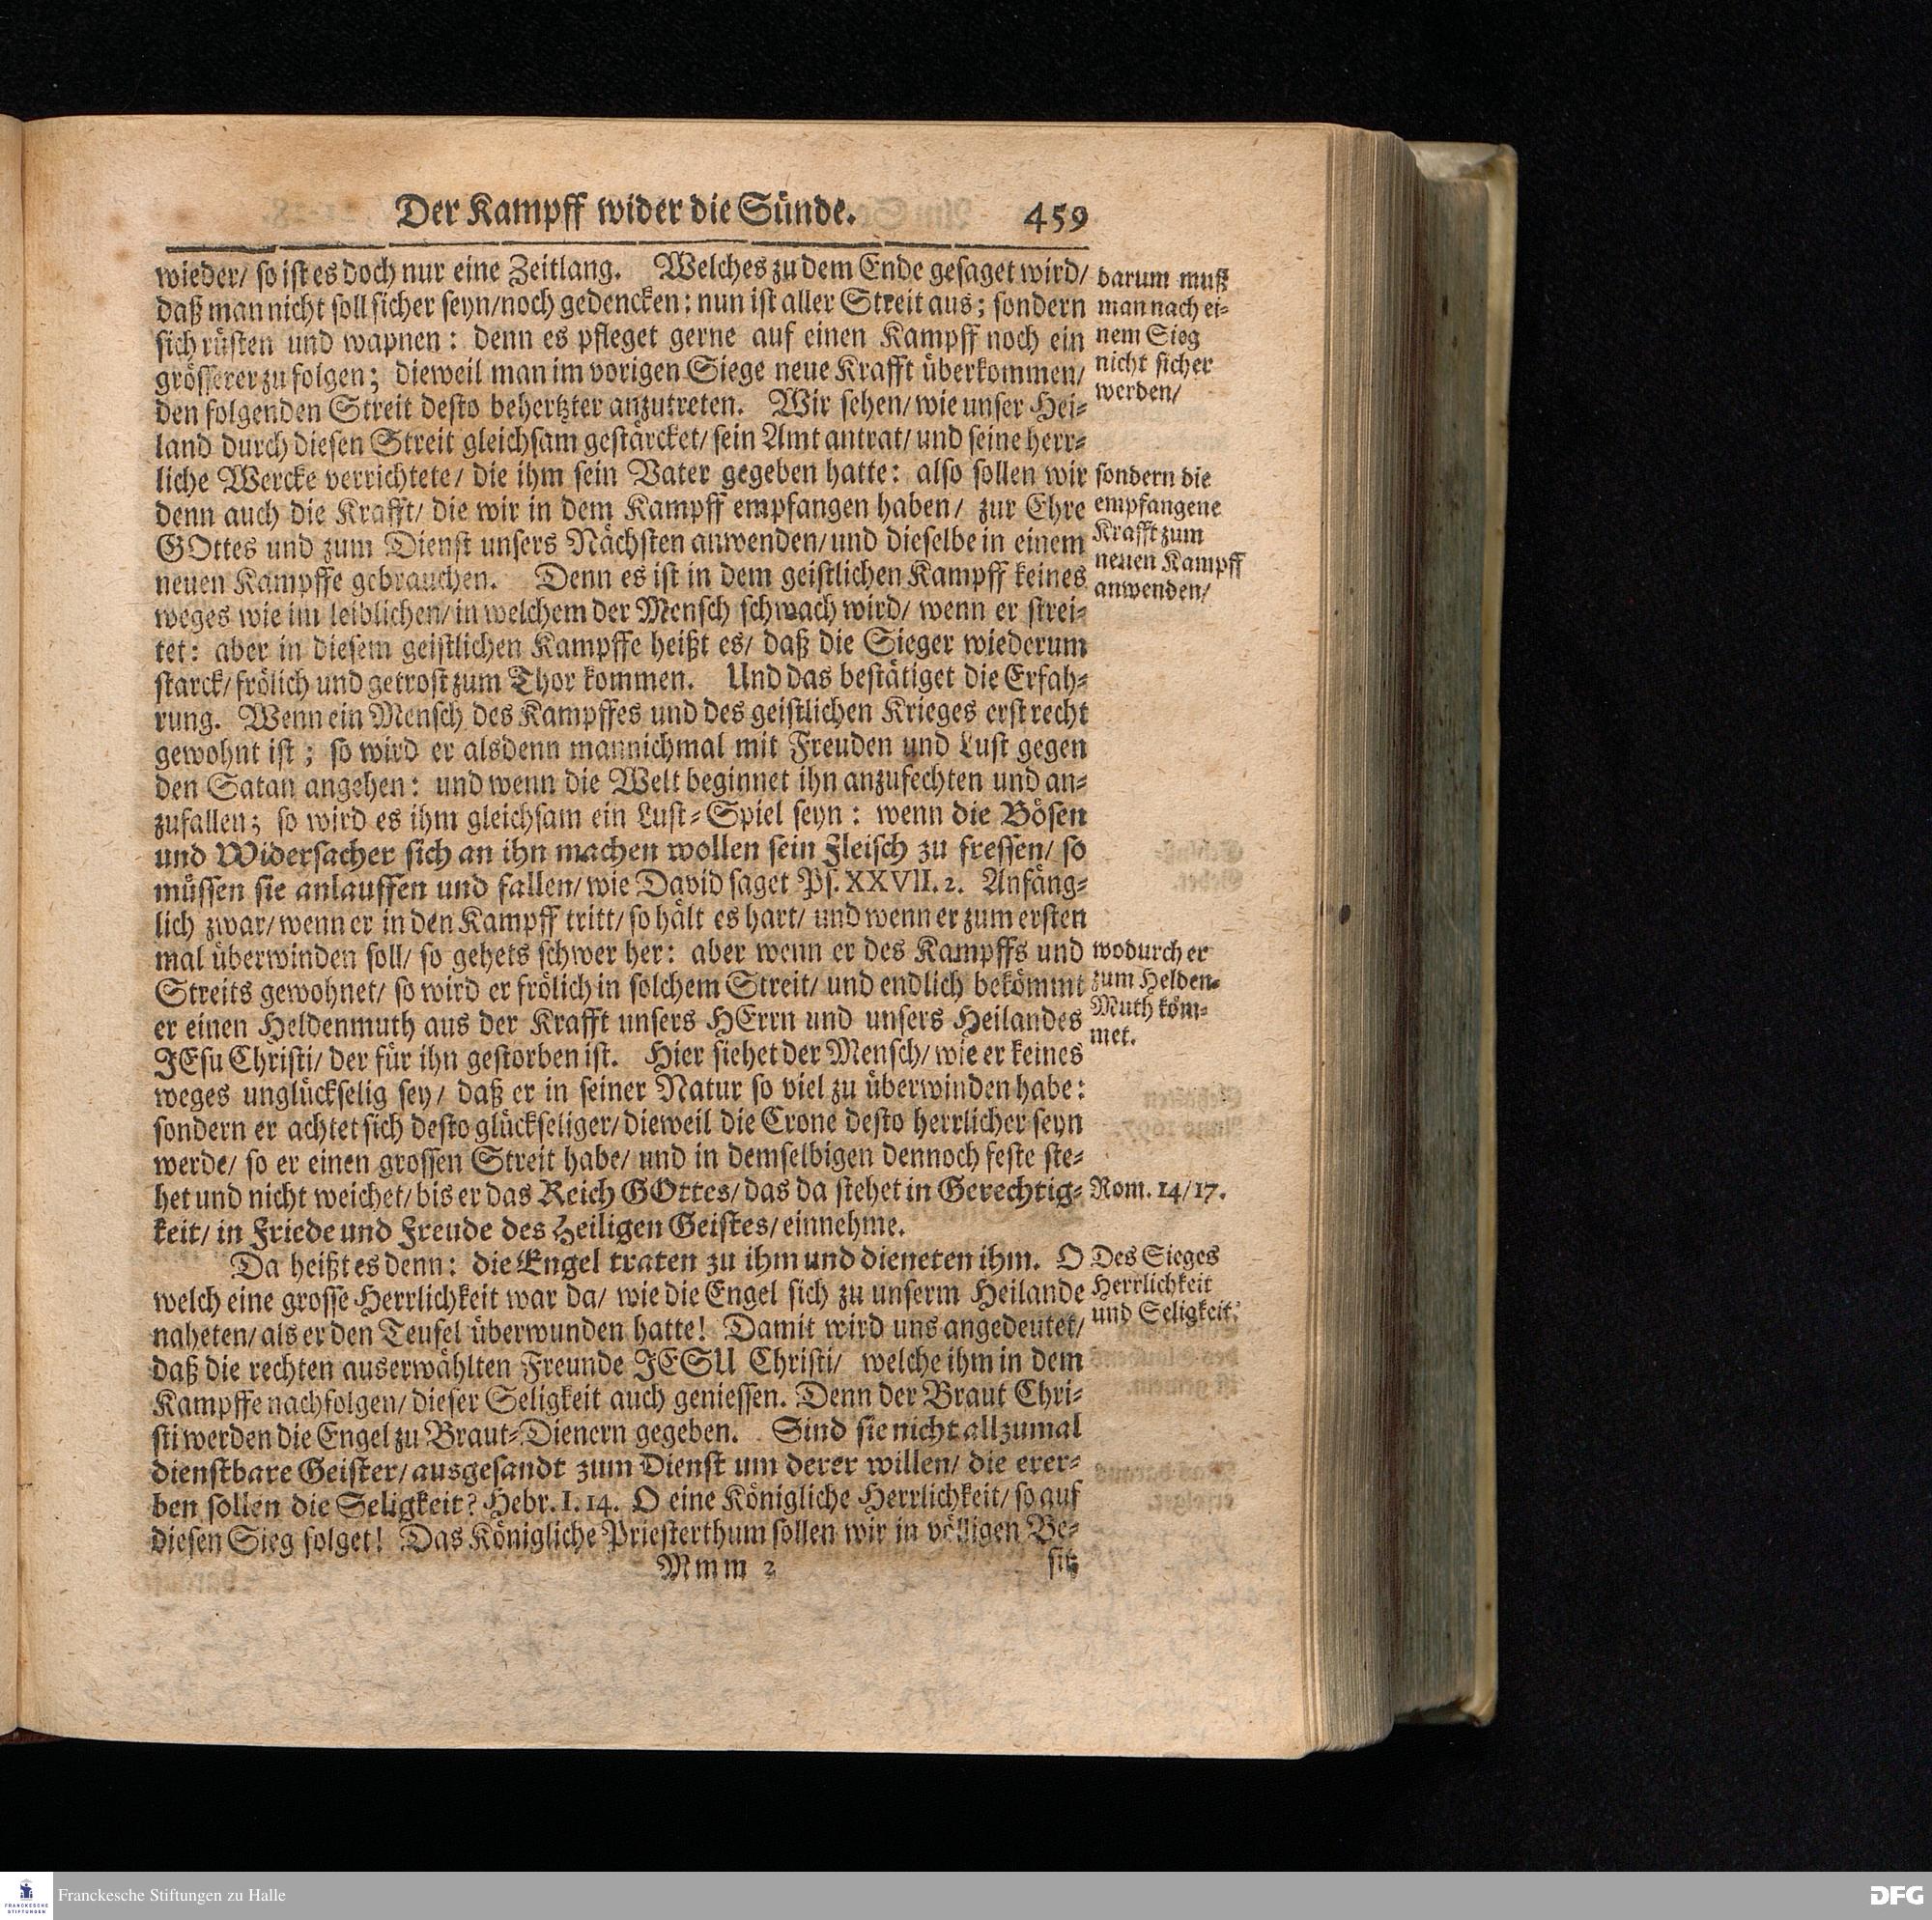 Der Kampff wider die Sünde. 459
wieder/ so ist es doch nur eine Zeitlang. Welches zu dem Ende gesaget wird/
daß man nicht soll sicher seyn/noch gedencken: nun ist aller Streit aus; sondern
sich rüsten und wapnen: denn es pfleget gerne auf einen Kampff noch ein
grösserer zu folgen; dieweil man im vorigen Siege neue Krafft überkommen/
den folgenden Streit desto behertzter anzutreten. Wir sehen/ wie unser Hei-
land durch diesen Streit gleichsam gestärcket/ sein Amt antrat/ und seine herr-
liche Wercke verrichtete/ die ihm sein Vater gegeben hatte: also sollen wir
denn auch die Krafft/ die wir in dem Kampff empfangen haben/ zur Ehre
GOttes und zum Dienst unsers Nächsten anwenden/ und dieselbe in einem
neuen Kampffe gebrauchen. Denn es ist in dem geistlichen Kampff keines
weges wie im leiblichen/ in welchem der Mensch schwach wird/ wenn er strei-
tet: aber in diesem geistlichen Kampffe heißt es/ daß die Sieger wiederum
starck/ frölich und getrost zum Thor kommen. Und das bestätiget die Erfah-
rung. Wenn ein Mensch des Kampffes und des geistlichen Krieges erst recht
gewohnt ist; so wird er alsdenn mannichmal mit Freuden und Lust gegen
den Satan angehen: und wenn die Welt beginnet ihn anzufechten und an-
zufallen; so wird es ihm gleichsam ein Lust-Spiel seyn: wenn die Bösen
und Widersacher sich an ihn machen wollen sein Fleisch zu fressen/ so
müssen sie anlauffen und fallen/ wie David saget Ps. XXVII. 2. Anfäng-
lich zwar/ wenn er in den Kampff tritt/ so hält es hart/ und wenn er zum ersten
mal überwinden soll/ so gehets schwer her: aber wenn er des Kampffs und
Streits gewohnet/ so wird er frölich in solchem Streit/ und endlich bekömmt
er einen Heldenmuth aus der Krafft unsers HErrn und unsers Heilandes
JEsu Christi/ der für ihn gestorben ist. Hier siehet der Mensch/ wie er keines
weges unglückselig sey/ daß er in seiner Natur so viel zu überwinden habe:
sondern er achtet sich desto glückseliger/ dieweil die Crone desto herrlicher seyn
werde/ so er einen grossen Streit habe/ und in demselbigen dennoch feste ste-
het und nicht weichet/ bis er das Reich GOttes/ das da stehet in Gerechtig-
keit/ in Friede und Freude des Heiligen Geistes/ einnehme.
Da heißt es denn: die Engel traten zu ihm und dieneten ihm. O
welch eine grosse Herrlichkeit war da/ wie die Engel sich zu unserm Heilande
naheten/ als er den Teufel überwunden hatte! Damit wird uns angedeutet/
daß die rechten auserwählten Freunde JESU Christi/ welche ihm in dem
Kampffe nachfolgen/ dieser Seligkeit auch geniessen. Denn der Braut Chri-
sti werden die Engel zu Braut-Dienern gegeben. Sind sie nicht allzumal
dienstbare Geister/ ausgesandt zum Dienst um derer willen/ die erer-
ben sollen die Seligkeit? Hebr. I. 14. O eine Königliche Herrlichkeit/ so auf
diesen Sieg folget! Das Königliche Priesterthum sollen wir in völligen Be-
Mmm 2 sitz
darum muß
man nach ei-
nem Sieg
nicht sicher
werden/
sondern die
empfangene
Krafft zum
neuen Kampff
anwenden/
wodurch er
zum Helden-
Muth kom-
met.
Rom. 14/17.
Des Sieges
Herrlichkeit
und Seligkeit.
Franckesche Stiftungen zu Halle
FRANCKESCHE
STIFTUNGEN
DFG